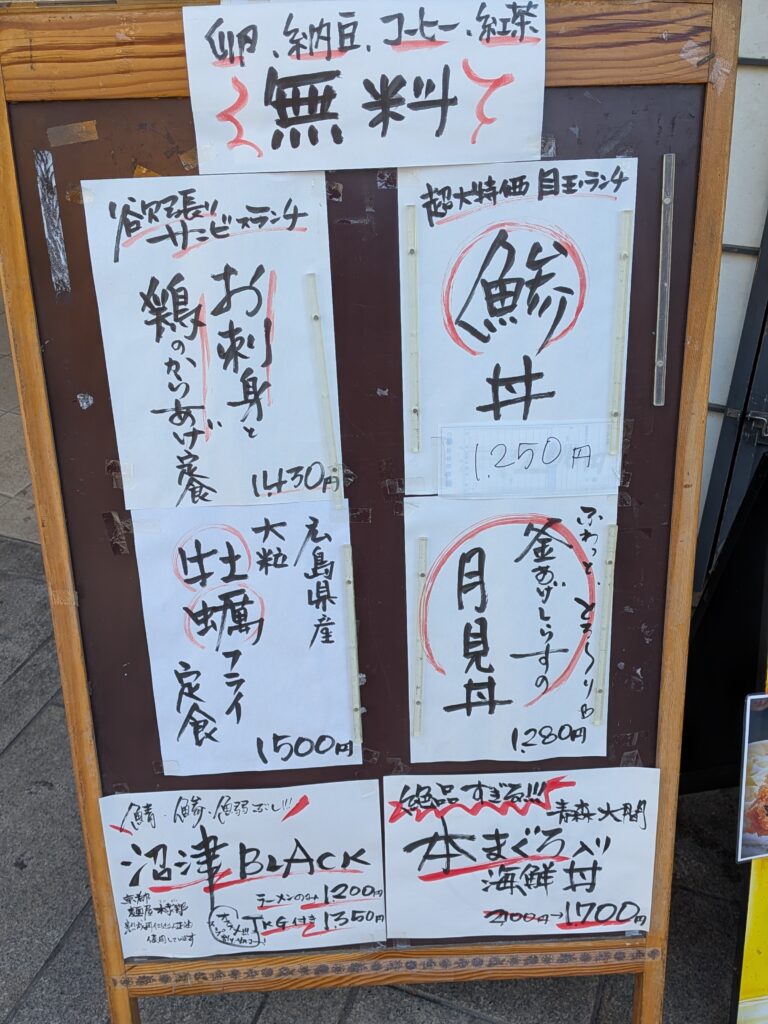 卵、納豆、コーヒー、紅茶
無料
欲張り
サービスランチ
お刺身と
鶏のからあげ定食
1,430円
超大特価 目玉ランチ
鯵
丼
1,250円
広島県産
大粒
牡蠣フライ
定食
1500円
ふわっと、とろ〜りの
釜あげしらすの
月見丼
1,280円
鯖・鯵・鰯だし!!!
沼津BLACK
京都
ラーメンのみ 1200円
TKG付き 1,350円
使用しています
絶品すぎる!!! 青森大間
本まぐろ入り
海鮮丼
2,100円→1700円